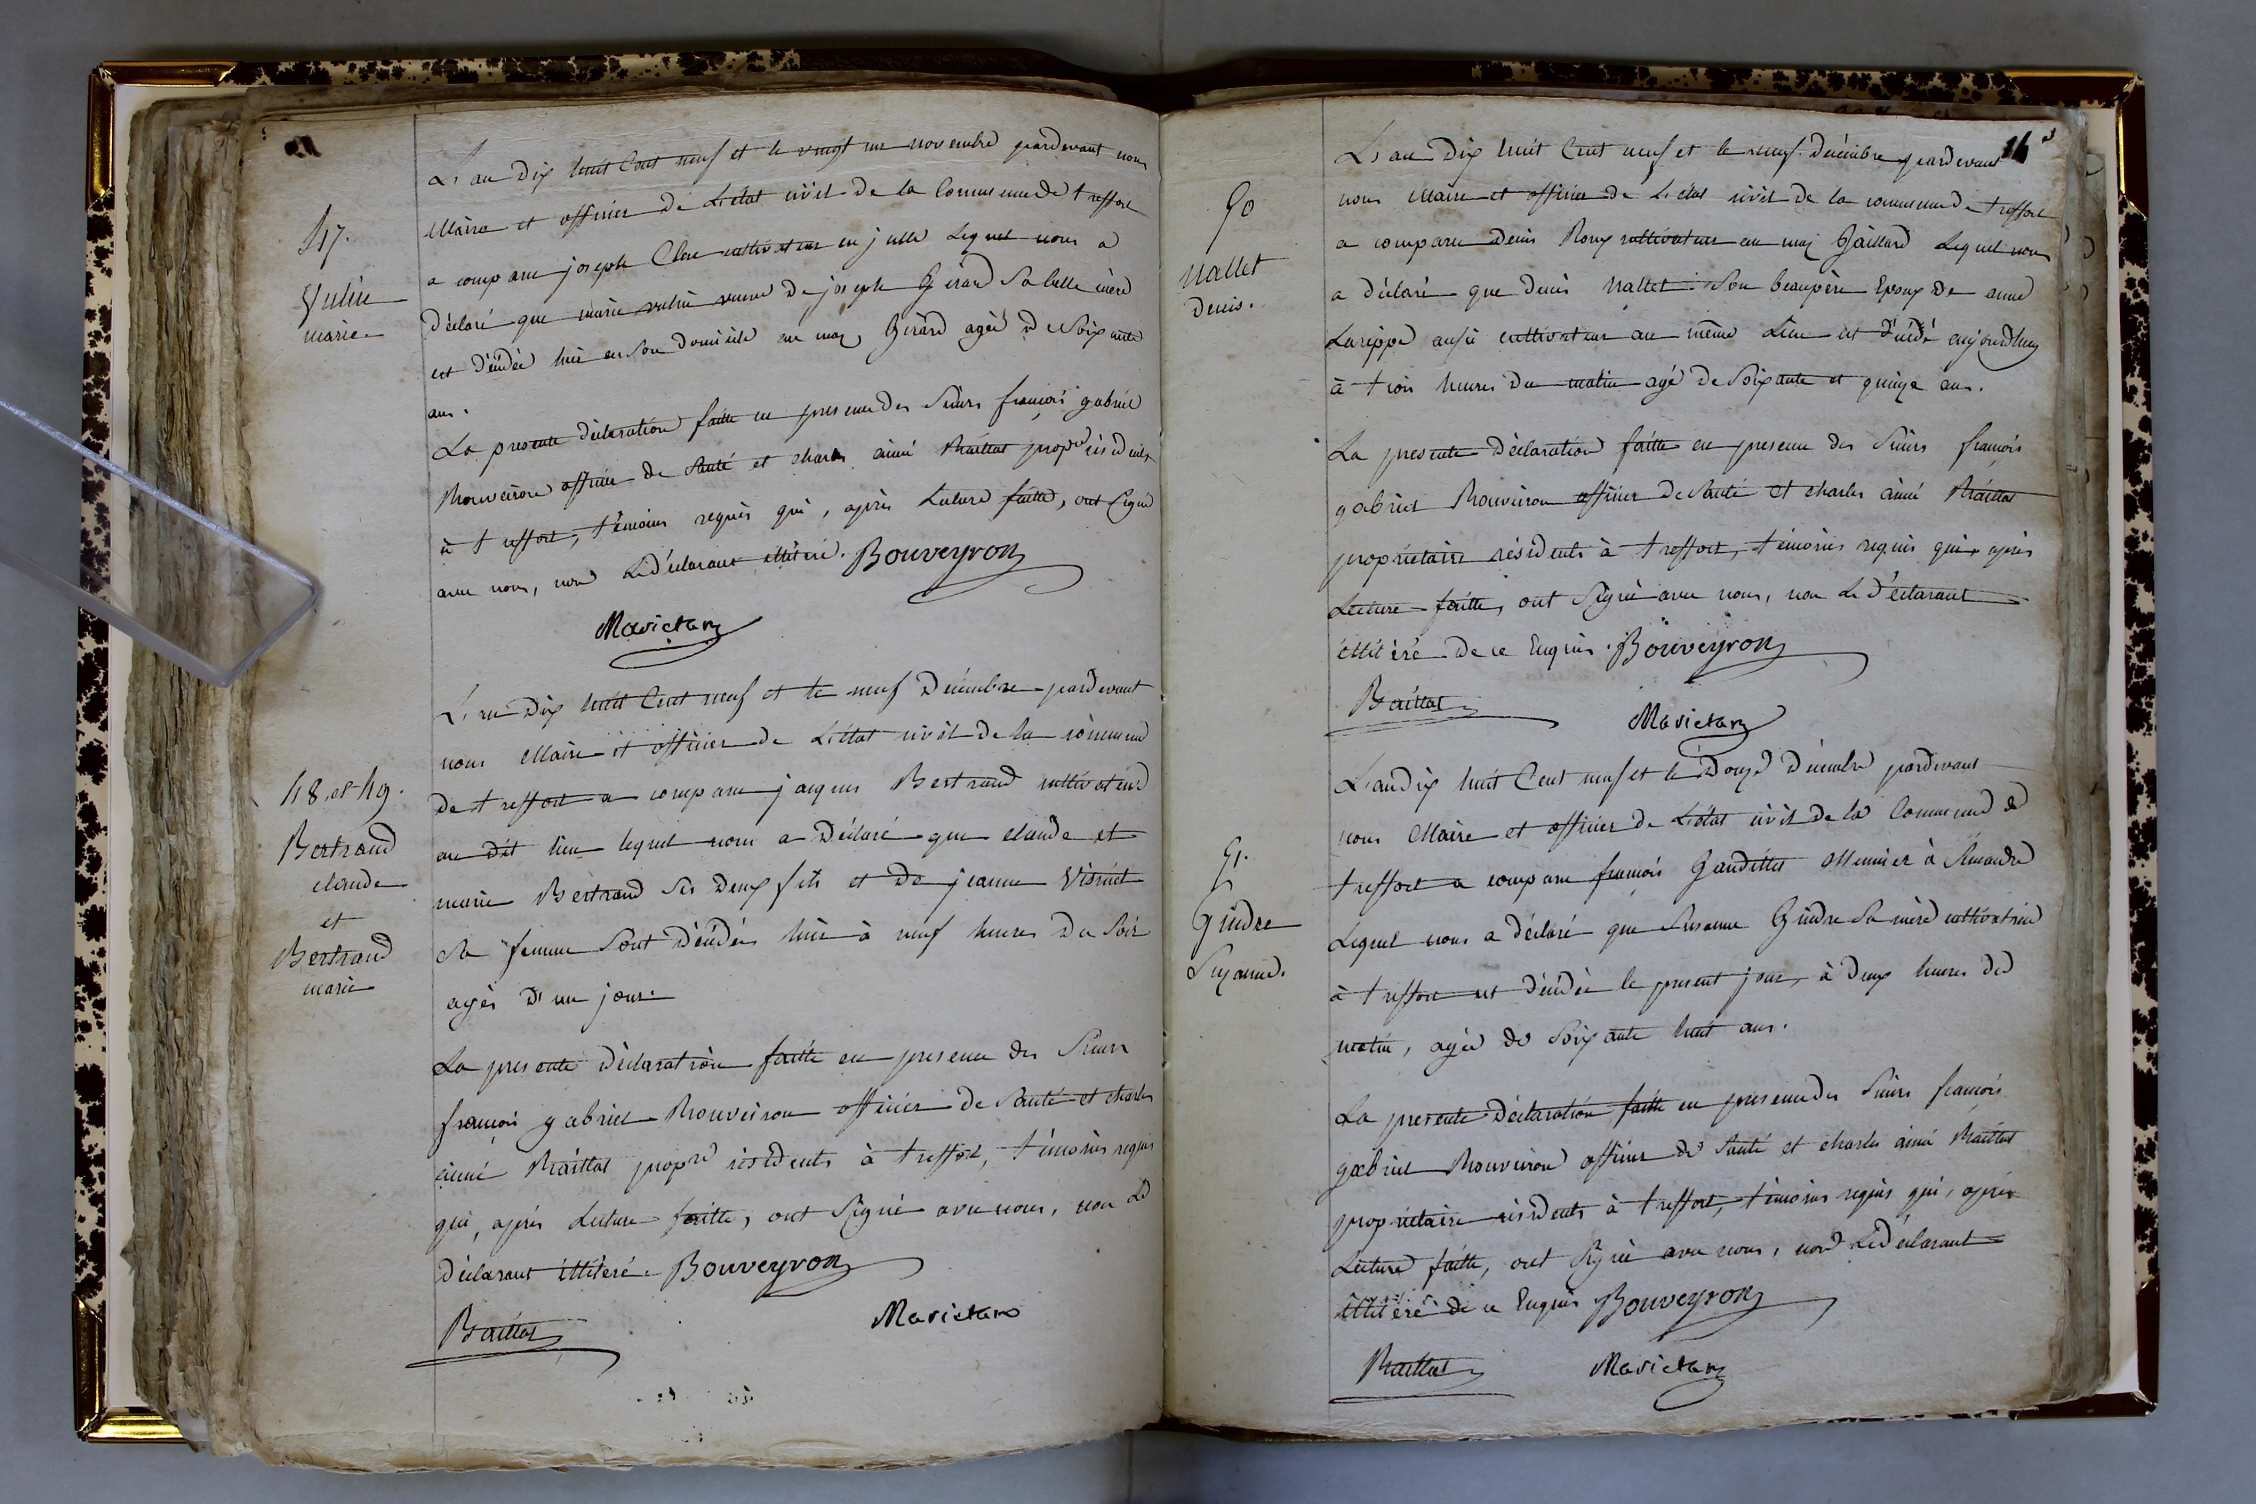 47.
Vulin
marie
L'an dix huit Cent neuf et le vingt un novembre pardevant nous
Maire et officier de L'état civil de la Commune de treffort
a comparu joseph Clere cultivateur en julle Lequel nous a
déclaré que marie vulin veuve de joseph Gérard Sa belle mère
est décédée hier en Son domicile au maz Gérard agée de Soixante
ans.
La presente déclaration faitte en presence des Sieurs françois gabriel
Bouveiron officier de Santé et charles aimé Baillat prop.re résidents
à treffort, témoins requis qui, après Lecture faitte, ont Signé
avec nous, non Le déclarant illitéré. Bouveyron
Mavictan
48 et 49.
Bertrand
claude
et
Bertrand
marie
L'an dix huit Cent neuf et le neuf Décembre pardevant
nous Maire et officier de L'état civil de la commune
de treffort a comparu jacques Bertrand cultivateur
au dit lieu lequel nous a déclaré que claude et
marie Bertrand Ses deux fils et de jeanne
Sa femme Sont décédés hier à neuf heures du Soir
agés d'un jour.
La presente déclaration faitte en presence des Sieurs
françois gabriel Bouveiron officier de Santé et charles
aimé Baillat prop.re résidents à treffort, témoins requis
qui, après Lecture faitte, ont Signé avec nous, non Le
déclarant illitéré. Bouveyron
Baillat Mavictan
16
50
Nallet
Denis.
L'an dix huit Cent neuf et le neuf décembre pardevant
nous Maire et officier de L'état civil de la commune de treffort
a comparu denis Roux cultivateur au maz Gaillard Lequel nous
a déclaré que denis Nallet Son beaupère Epoux de anne
Larippe aussi cultivateur au même Lieu est décédé aujourdhuy
à trois heures du matin agé de Soixante et quinze ans.
La presente déclaration faitte en presence des Sieurs françois
gabriel Bouveiron officier de Santé et charles aimé Baillat
propriétaire résidents à treffort, témoins requis qui, après
Lecture faitte, ont Signé avec nous, non Le déclarant
illitéré de ce Enquis. Bouveyron
Baillat Mavictan
51.
Gindre
Suzanne.
L'an dix huit Cent neuf et le douze décembre pardevant
nous Maire et officier de L'état civil de la Commune de
treffort a comparu françois Gaudillet Meunier à Simandre
Lequel nous a déclaré que Susanne Gindre Sa mère cultivatrice
à treffort est décédée le present jour, à deux heures de
matin, agée de Soixante huit ans.
La presente déclaration faitte en presence des Sieurs françois
gabriel Bouveiron officier de Santé et charles aimé Baillat
propriétaire résidents à treffort, témoins requis qui, après
Lecture faitte, ont Signé avec nous, non Le déclarant
illitéré de ce Enquis Bouveyron
Baillat Mavictan